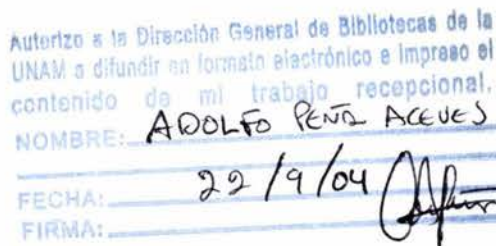 Autorizo a la Dirección General de Bibliotecas de la
UNAM a difundir en formato electrónico e impreso el
contenido de mi trabajo recepcional.
NOMBRE: ADOLFO PEÑA ACEVES
FECHA: 22/9/04
FIRMA: